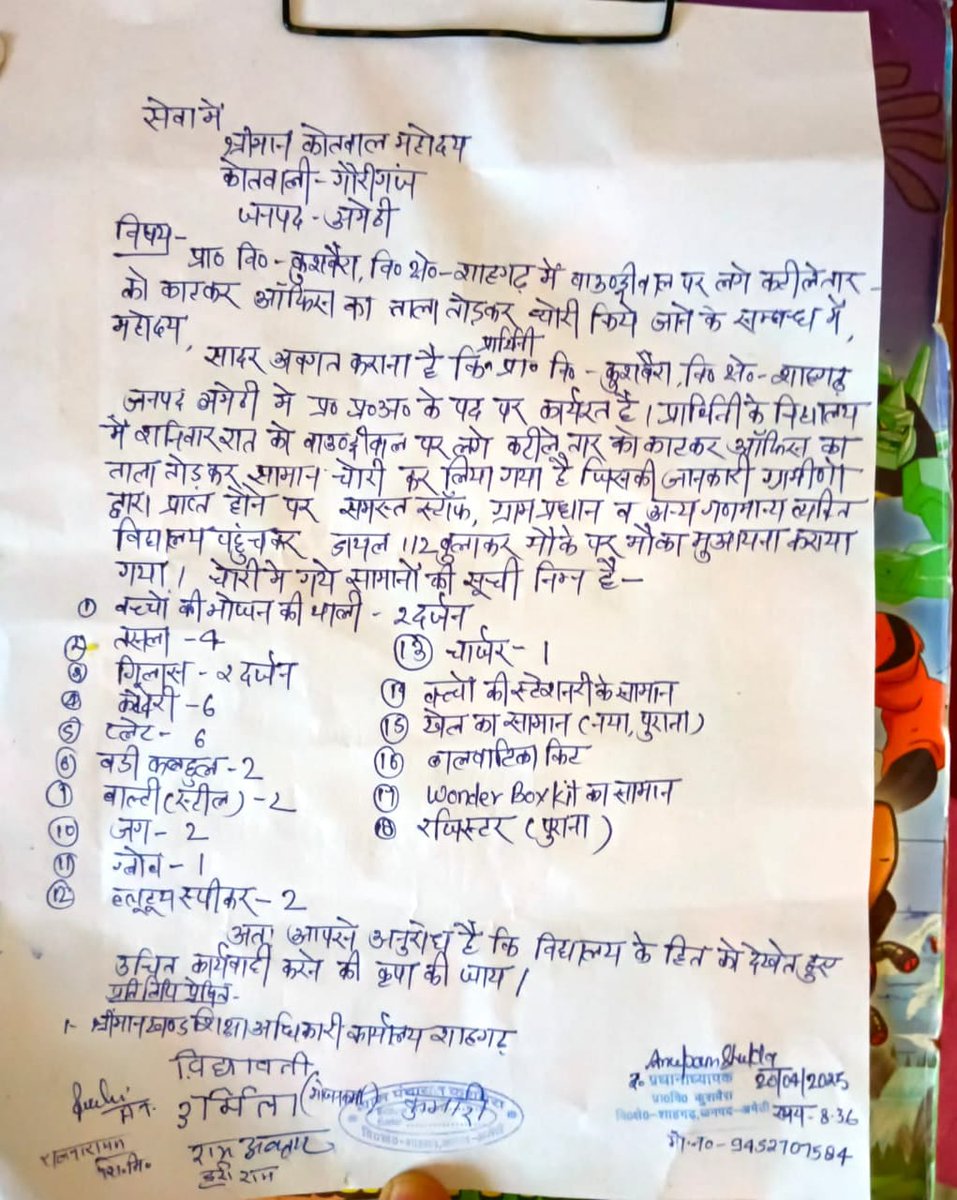 सेवा में
श्रीमान कोतवाल महोदय
कोतवाली - गौरीगंज
जनपद - अमेठी
विषय -
प्रा० वि० - कुशबैरा, वि० क्षे० - शाहगढ़ में बाउण्ड्रीवाल पर लगे कटीले तार
को काटकर ऑफिस का ताला तोड़कर चोरी किये जाने के सम्बन्ध में,
महोदय,
प्रार्थिनी
सादर अवगत कराना है कि प्रा० वि० - कुशबैरा, वि० क्षे० - शाहगढ़
जनपद अमेठी में प्र० प्र०अ० के पद पर कार्यरत है। प्रार्थिनी के विद्यालय
में शनिवार रात को बाउण्ड्रीवाल पर लगे कटीले तार को काटकर ऑफिस का
ताला तोड़कर सामान चोरी कर लिया गया है जिसकी जानकारी ग्रामीणों
द्वारा प्राप्त होने पर समस्त स्टॉफ, ग्राम प्रधान व अन्य गणमान्य व्यक्ति
विद्यालय पहुंचकर डायल 112 बुलाकर मौके पर मौका मुआयना कराया
गया। चोरी मे गये सामानों की सूची निम्न है -
① बच्चों की भोजन की थाली - २ दर्जन
② तसला - 4
③ गिलास - २ दर्जन
④ कटोरी - 6
⑤ प्लेट - 6
⑥ बडी कलछुल - 2
⑨ बाल्टी (स्टील) - 2
⑩ जग - 2
⑪ ग्लोब - 1
⑫ ब्लूटूथ स्पीकर - 2
⑬ चार्जर - 1
⑭ बच्चों की स्टेशनरी के सामान
⑮ खेल का सामान (नया, पुराना)
⑯ बालवाटिका किट
⑰ Wonder Box kit का सामान
⑱ रजिस्टर (पुराना)
अतः आपसे अनुरोध है कि विद्यालय के हित को देखते हुए
उचित कार्यवाही करने की कृपा की जाय।
प्रतिलिपि प्रेषित -
1- श्रीमान खण्ड शिक्षा अधिकारी कार्यालय शाहगढ़
विद्यावती
उर्मिला कुमारी
राम अवतार
हरी राम
राजनारायण
शि०मि०
Anupam Shukla
इ. प्रधानाध्यापक 20/04/2025
प्रा०वि० कुशबैरा
वि०क्षे०-शाहगढ़, जनपद-अमेठी समय - 8:36
मो० न० - 9452707584